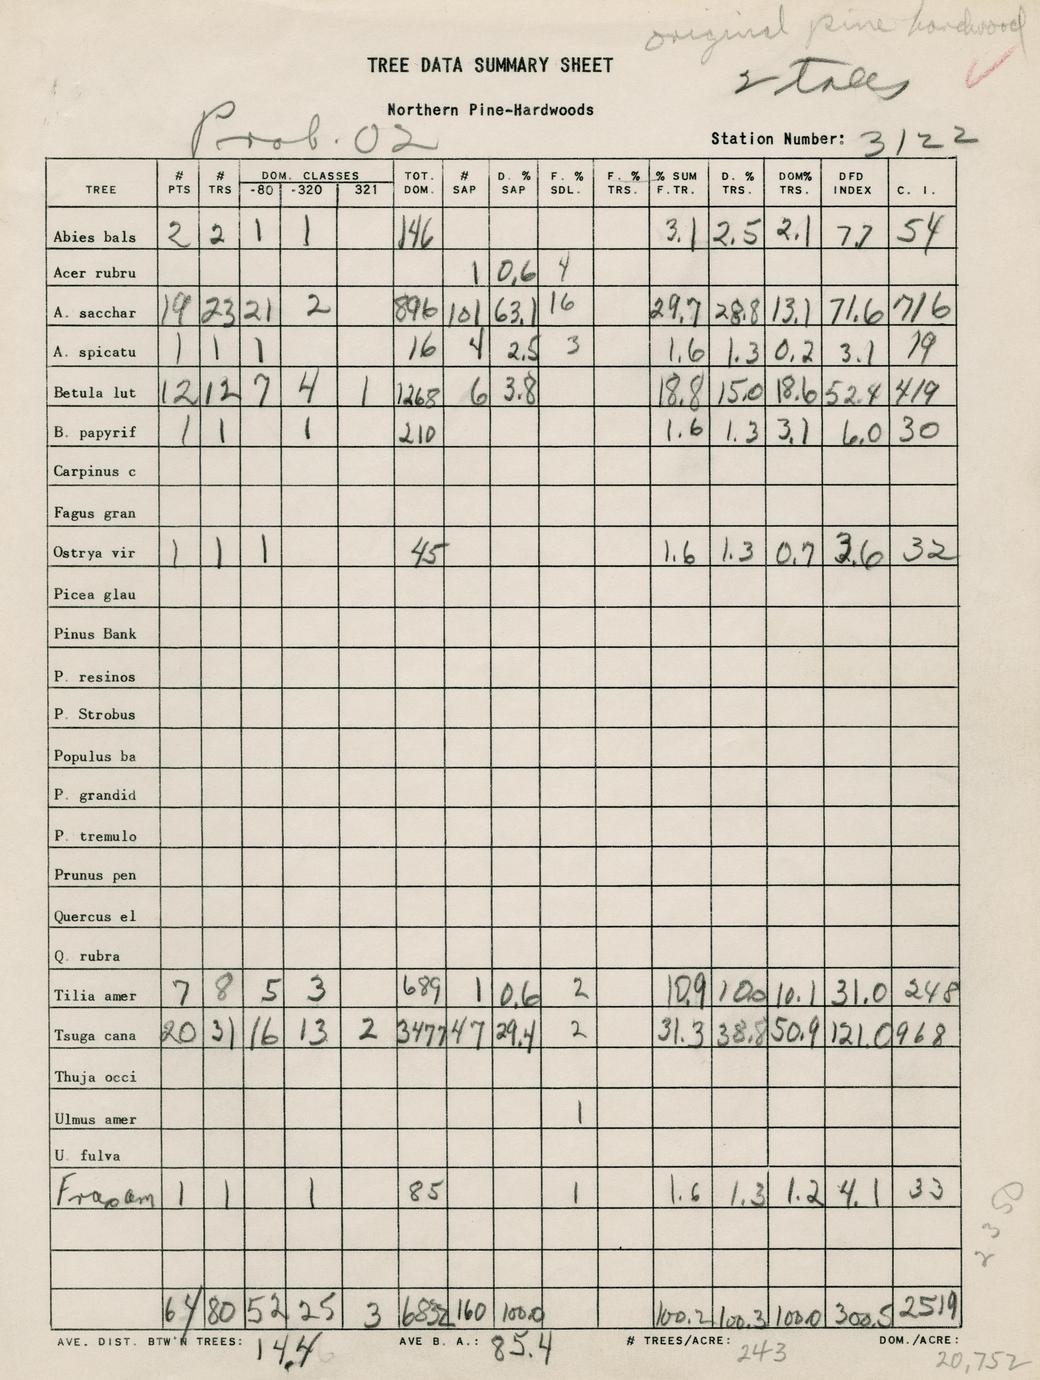 original pine hardwood
TREE DATA SUMMARY SHEET
2 trees
Northern Pine-Hardwoods
Prob. 02
Station Number: 3122
TREE # PTS # TRS DOM. CLASSES -80 -320 321 TOT. DOM. # SAP D. % SAP F. % SDL. F. % TRS. % SUM F.TR. D. % TRS. DOM% TRS. DFD INDEX C. I.
Abies bals 2 2 1 1 146 3.1 2.5 2.1 7.7 54
Acer rubru 1 0.6 4
A. sacchar 19 23 21 2 896 101 63.1 16 29.7 28.8 13.1 71.6 716
A. spicatu 1 1 1 16 4 2.5 3 1.6 1.3 0.2 3.1 19
Betula lut 12 12 7 4 1 1268 6 3.8 18.8 15.0 18.6 52.4 419
B. papyrif 1 1 1 210 1.6 1.3 3.1 6.0 30
Carpinus c
Fagus gran
Ostrya vir 1 1 1 45 1.6 1.3 0.7 3.6 32
Picea glau
Pinus Bank
P. resinos
P. Strobus
Populus ba
P. grandid
P. tremulo
Prunus pen
Quercus el
Q. rubra
Tilia amer 7 8 5 3 689 1 0.6 2 10.9 10.0 10.1 31.0 248
Tsuga cana 20 31 16 13 2 3477 47 29.4 2 31.3 38.8 50.9 121.0 968
Thuja occi
Ulmus amer 1
U. fulva
Fraxam 1 1 1 85 1 1.6 1.3 1.2 4.1 33
2350
64 80 52 25 3 6832 160 100.0 100.2 100.3 100.0 300.5 2519
AVE. DIST. BTW'N TREES: 14.4 AVE B. A.: 85.4 # TREES/ACRE: 243 DOM./ACRE: 20,752